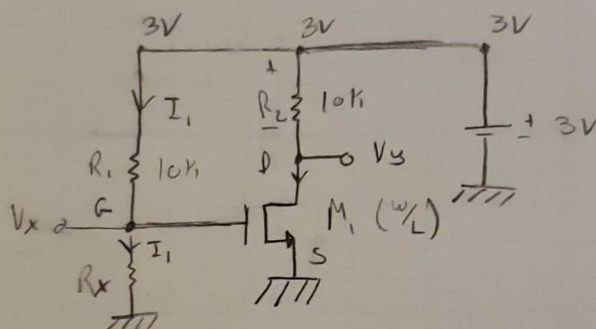 3V 3V 3V
I1
+
R2 10K
-
+ 3V
-
R1 10K
D Vy
Vx G
M1 (W/L)
I1
S
Rx